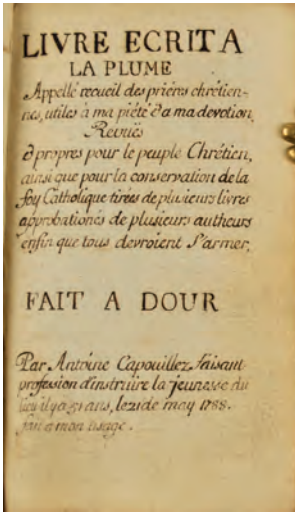 LIVRE ECRIT A
LA PLUME
Appellé recueil des priéres chrétien-
nes, utiles à ma piété & a ma devotion,
Revuës
& propres pour le peuple Chrétien,
ainsi que pour la conservation de la
foy Catholique tirées de plusieurs livres
approbationés de plusieurs autheurs
enfin que tous devroient s'armer,
FAIT A DOUR
Par Antoine Capouillez, faisant
profession d'instruire la jeunesse du
lieu il y a 31 ans, le 21 de may 1788.
fait a mon usage.